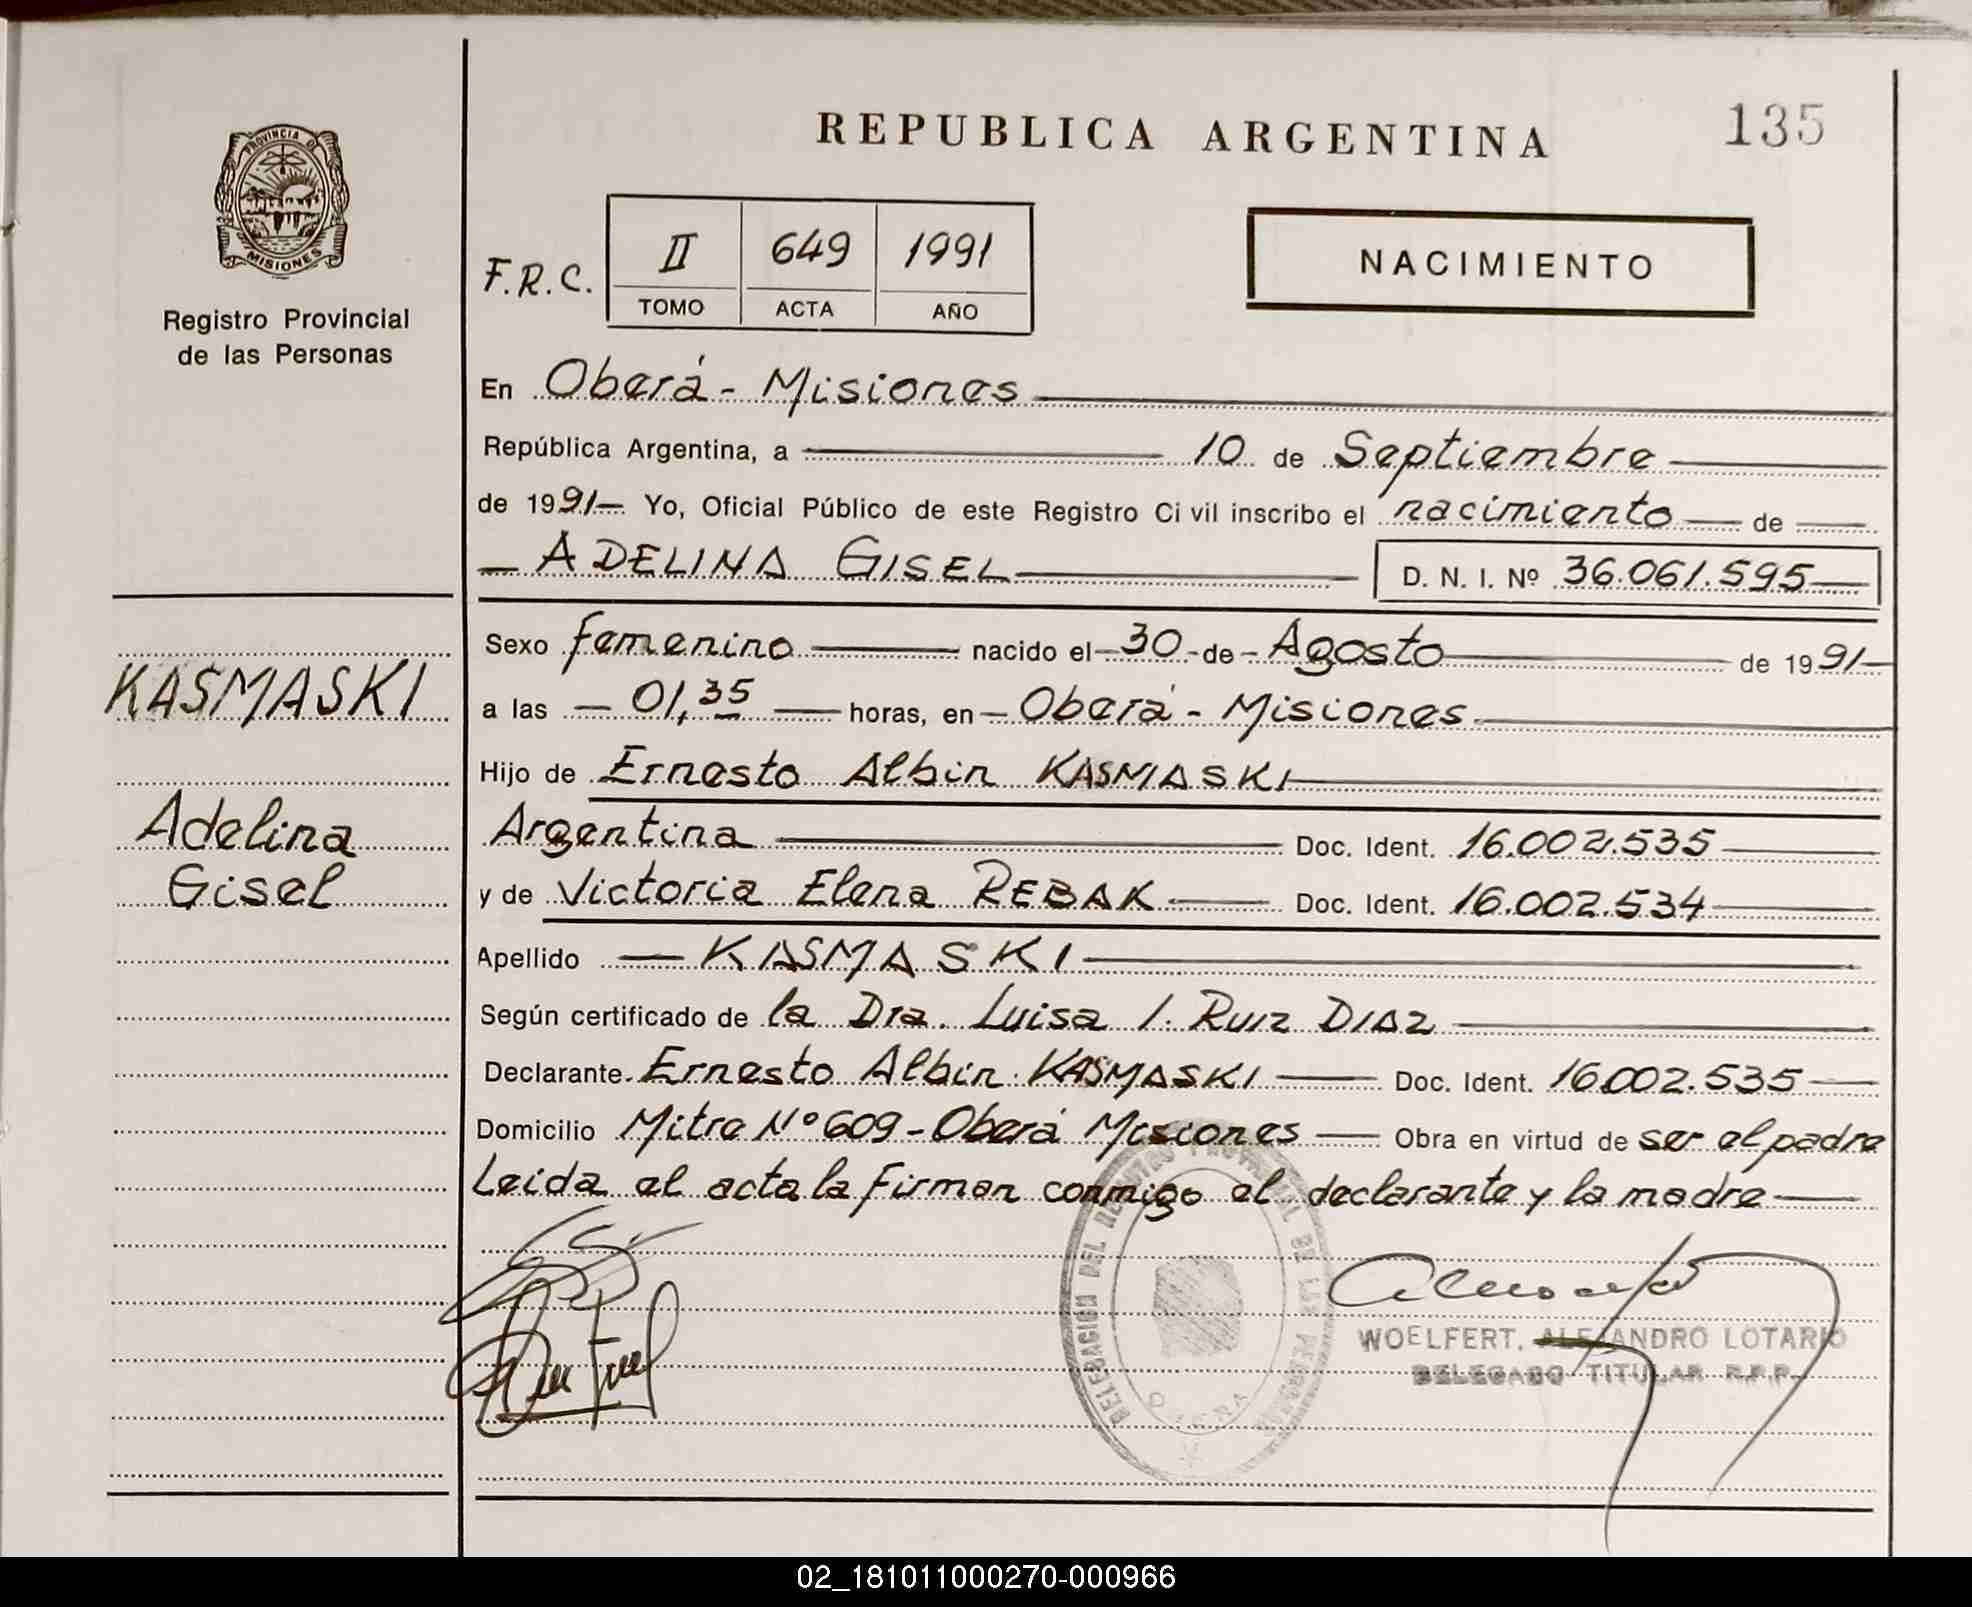 REPUBLICA ARGENTINA
135
PROVINCIA DE
MISIONES
Registro Provincial
de las Personas
F.R.C.
II 649 1991
TOMO ACTA AÑO
NACIMIENTO
En Oberá - Misiones
República Argentina, a 10 de Septiembre
de 1991 Yo, Oficial Público de este Registro Civil inscribo el nacimiento de
ADELINA GISEL D. N. I. Nº 36.061.595
Sexo femenino nacido el 30 de Agosto de 1991
a las 01,35 horas, en Oberá - Misiones
Hijo de Ernesto Albin KASMASKI
Argentina Doc. Ident. 16.002.535
y de Victoria Elena REBAK Doc. Ident. 16.002.534
Apellido KASMASKI
Según certificado de la Dra. Luisa I. RUIZ DIAZ
Declarante Ernesto Albin KASMASKI Doc. Ident. 16.002.535
Domicilio Mitre Nº 609 - Oberá Misiones Obra en virtud de ser el padre
Leida el acta la firman conmigo el declarante y la madre
KASMASKI
Adelina
Gisel
DELEGACION DEL REGISTRO PROVINCIAL DE LAS PERSONAS
WOELFERT, ALEJANDRO LOTARIO
DELEGADO TITULAR R.P.P.
02_181011000270-000966